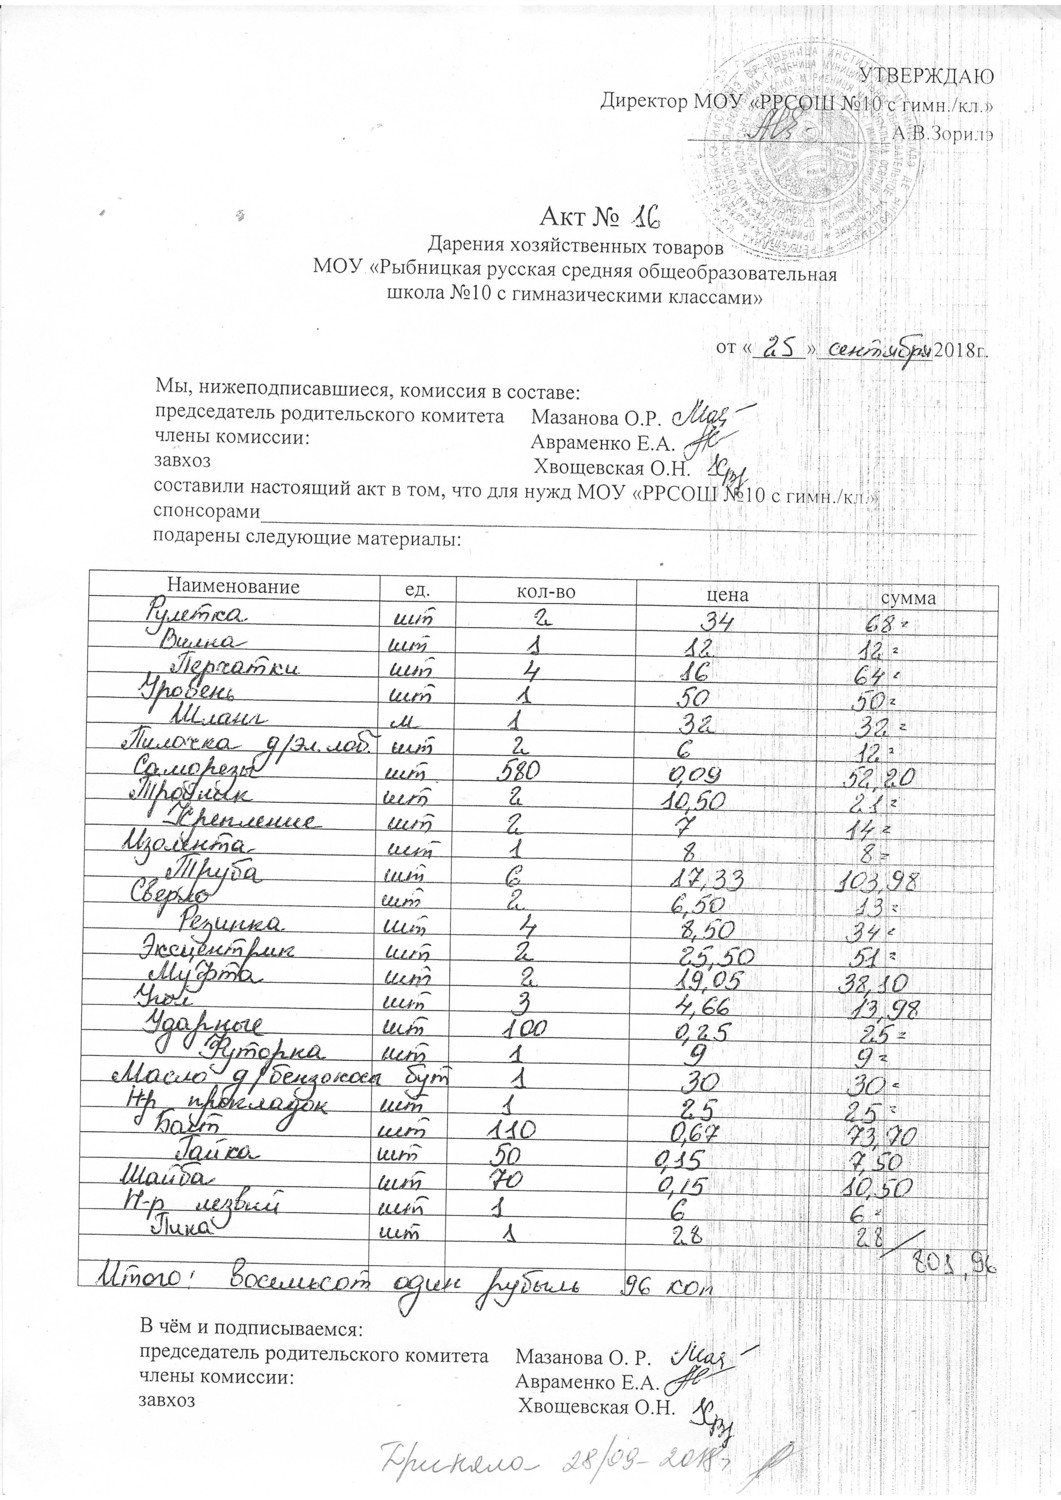 УТВЕРЖДАЮ
Директор МОУ «РРСОШ №10 с гимн./кл.»
А.В.Зорилэ
Акт № 16
Дарения хозяйственных товаров
МОУ «Рыбницкая русская средняя общеобразовательная
школа №10 с гимназическими классами»
от « 25 » сентября 2018г.
Мы, нижеподписавшиеся, комиссия в составе:
председатель родительского комитета Мазанова О.Р.
члены комиссии: Авраменко Е.А.
завхоз Хвощевская О.Н.
составили настоящий акт в том, что для нужд МОУ «РРСОШ №10 с гимн./кл.»
спонсорами
подарены следующие материалы:
Наименование ед. кол-во цена сумма
Рулетка шт 2 34 68=
Вилка шт 1 12 12=
Перчатки шт 4 16 64=
Уровень шт 1 50 50=
Шланг м 1 32 32=
Пилочка д/эл.лоб. шт 2 6 12=
Саморезы шт 580 0,09 52,20
Тройник шт 2 10,50 21=
Крепление шт 2 7 14=
Изолента шт 1 8 8=
Труба шт 6 17,33 103,98
Сверло шт 2 6,50 13=
Резинка шт 4 8,50 34=
Эксцентрик шт 2 25,50 51=
Муфта шт 2 19,05 38,10
Угол шт 3 4,66 13,98
Ударные шт 100 0,25 25=
Футорка шт 1 9 9=
Масло д/бензокосы бут 1 30 30=
Н-р прокладок шт 1 25 25=
Болт шт 110 0,67 73,70
Гайка шт 50 0,15 7,50
Шайба шт 70 0,15 10,50
Н-р лезвий шт 1 6 6=
Пика шт 1 28 28
801,96
Итого: восемьсот один рубыль 96 коп
В чём и подписываемся:
председатель родительского комитета Мазанова О. Р.
члены комиссии: Авраменко Е.А.
завхоз Хвощевская О.Н.
Приняла 28/09-2018г